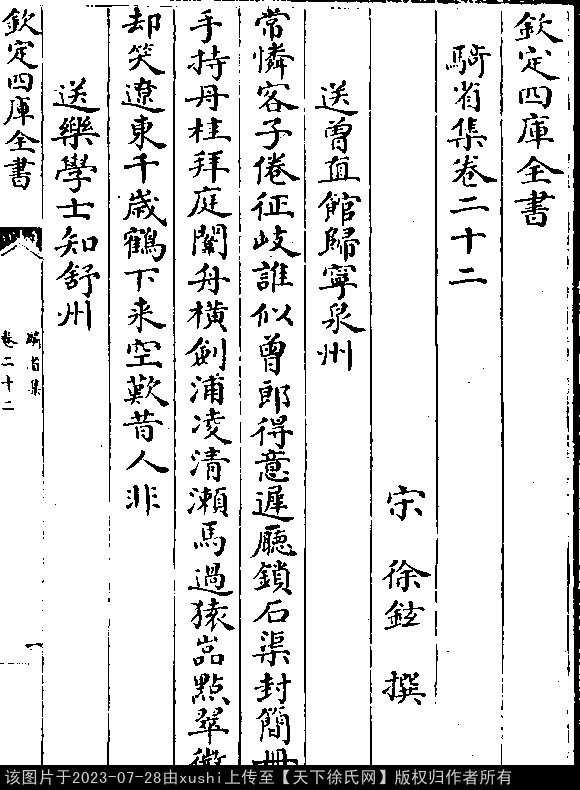 欽定四庫全書
騎省集卷二十二
宋 徐鉉 撰
送曾直館歸寧泉州
常憐客子倦征岐誰似曾郎得意遲廳鎖石渠封簡冊
手持丹桂拜庭闈舟橫劍浦凌清瀨馬過猿嵓點翠微
却笑遼東千歳鶴下来空歎昔人非
送樂學士知舒州
欽定四庫全書
騎省集
卷二十二
一
该图片于2023-07-28由xushi上传至【天下徐氏网】版权归作者所有